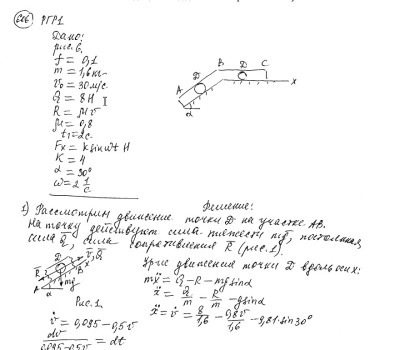 606 РГР1
Дано:
рис. 6.
f = 0,1
m = 1,6 кг
v₀ = 30 м/с.
Q = 8 Н
R = μv
μ = 0,8
t₁ = 2с.
Fx = k sin ωt Н
K = 4
α = 30°
ω = 2 1/с
A B D D C x α
Решение:
1) Рассмотрим движение точки D на участке AB.
На точку действуют сила тяжести mg, постоянная
сила Q, сила сопротивления R (рис. 1).
Ур-е движения точки D вдоль оси:
mẍ = Q - R - mg sin α
ẍ = Q/m - R/m - g sin α
ẍ = v̇ = 8/1,6 - 0,8v/1,6 - 9,81·sin 30°
Рис. 1
v̇ = 0,095 - 0,5v
dv/(0,095 - 0,5v) = dt